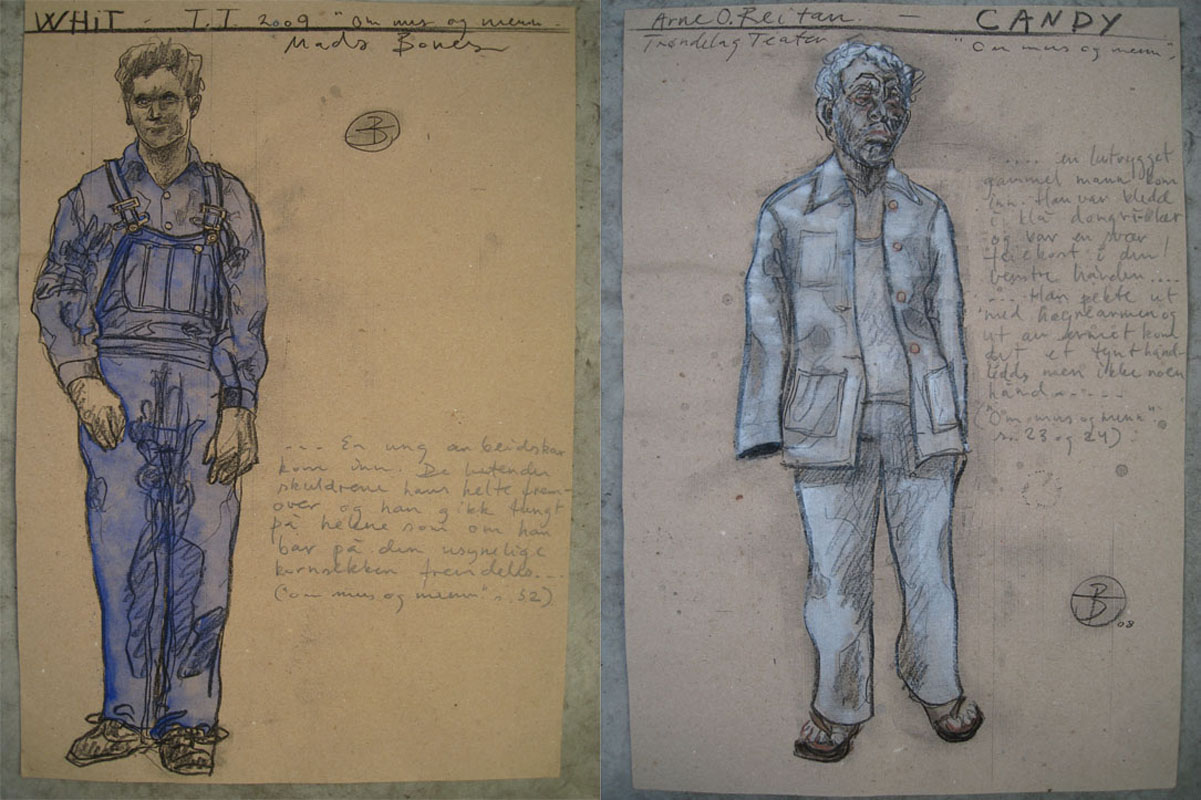 WHIT - T.T. 2009 "Om mus og menn.
Mads Bones
.... En ung arbeidskar
kom inn. De lutende
skuldrene hans helte frem-
over og han gikk tungt
på helene som om han
bar på den usynelige
kornsekken fremdeles...
("om mus og menn" s. 52)
Arne O. Reitan. - CANDY
Trøndelag Teater "Om mus og menn",
.... en lutrygget
gammel mann kom
inn. Han var kledd
i blå dongriklær
og bar en svær
feiekost i den
venstre hånden....
... Han pekte ut
med høyrearmen og
ut av ermet kom
det et tynt hånd-
ledd, men ikke noen
hånd......
("Om mus og menn"
s. 23 og 24)
08